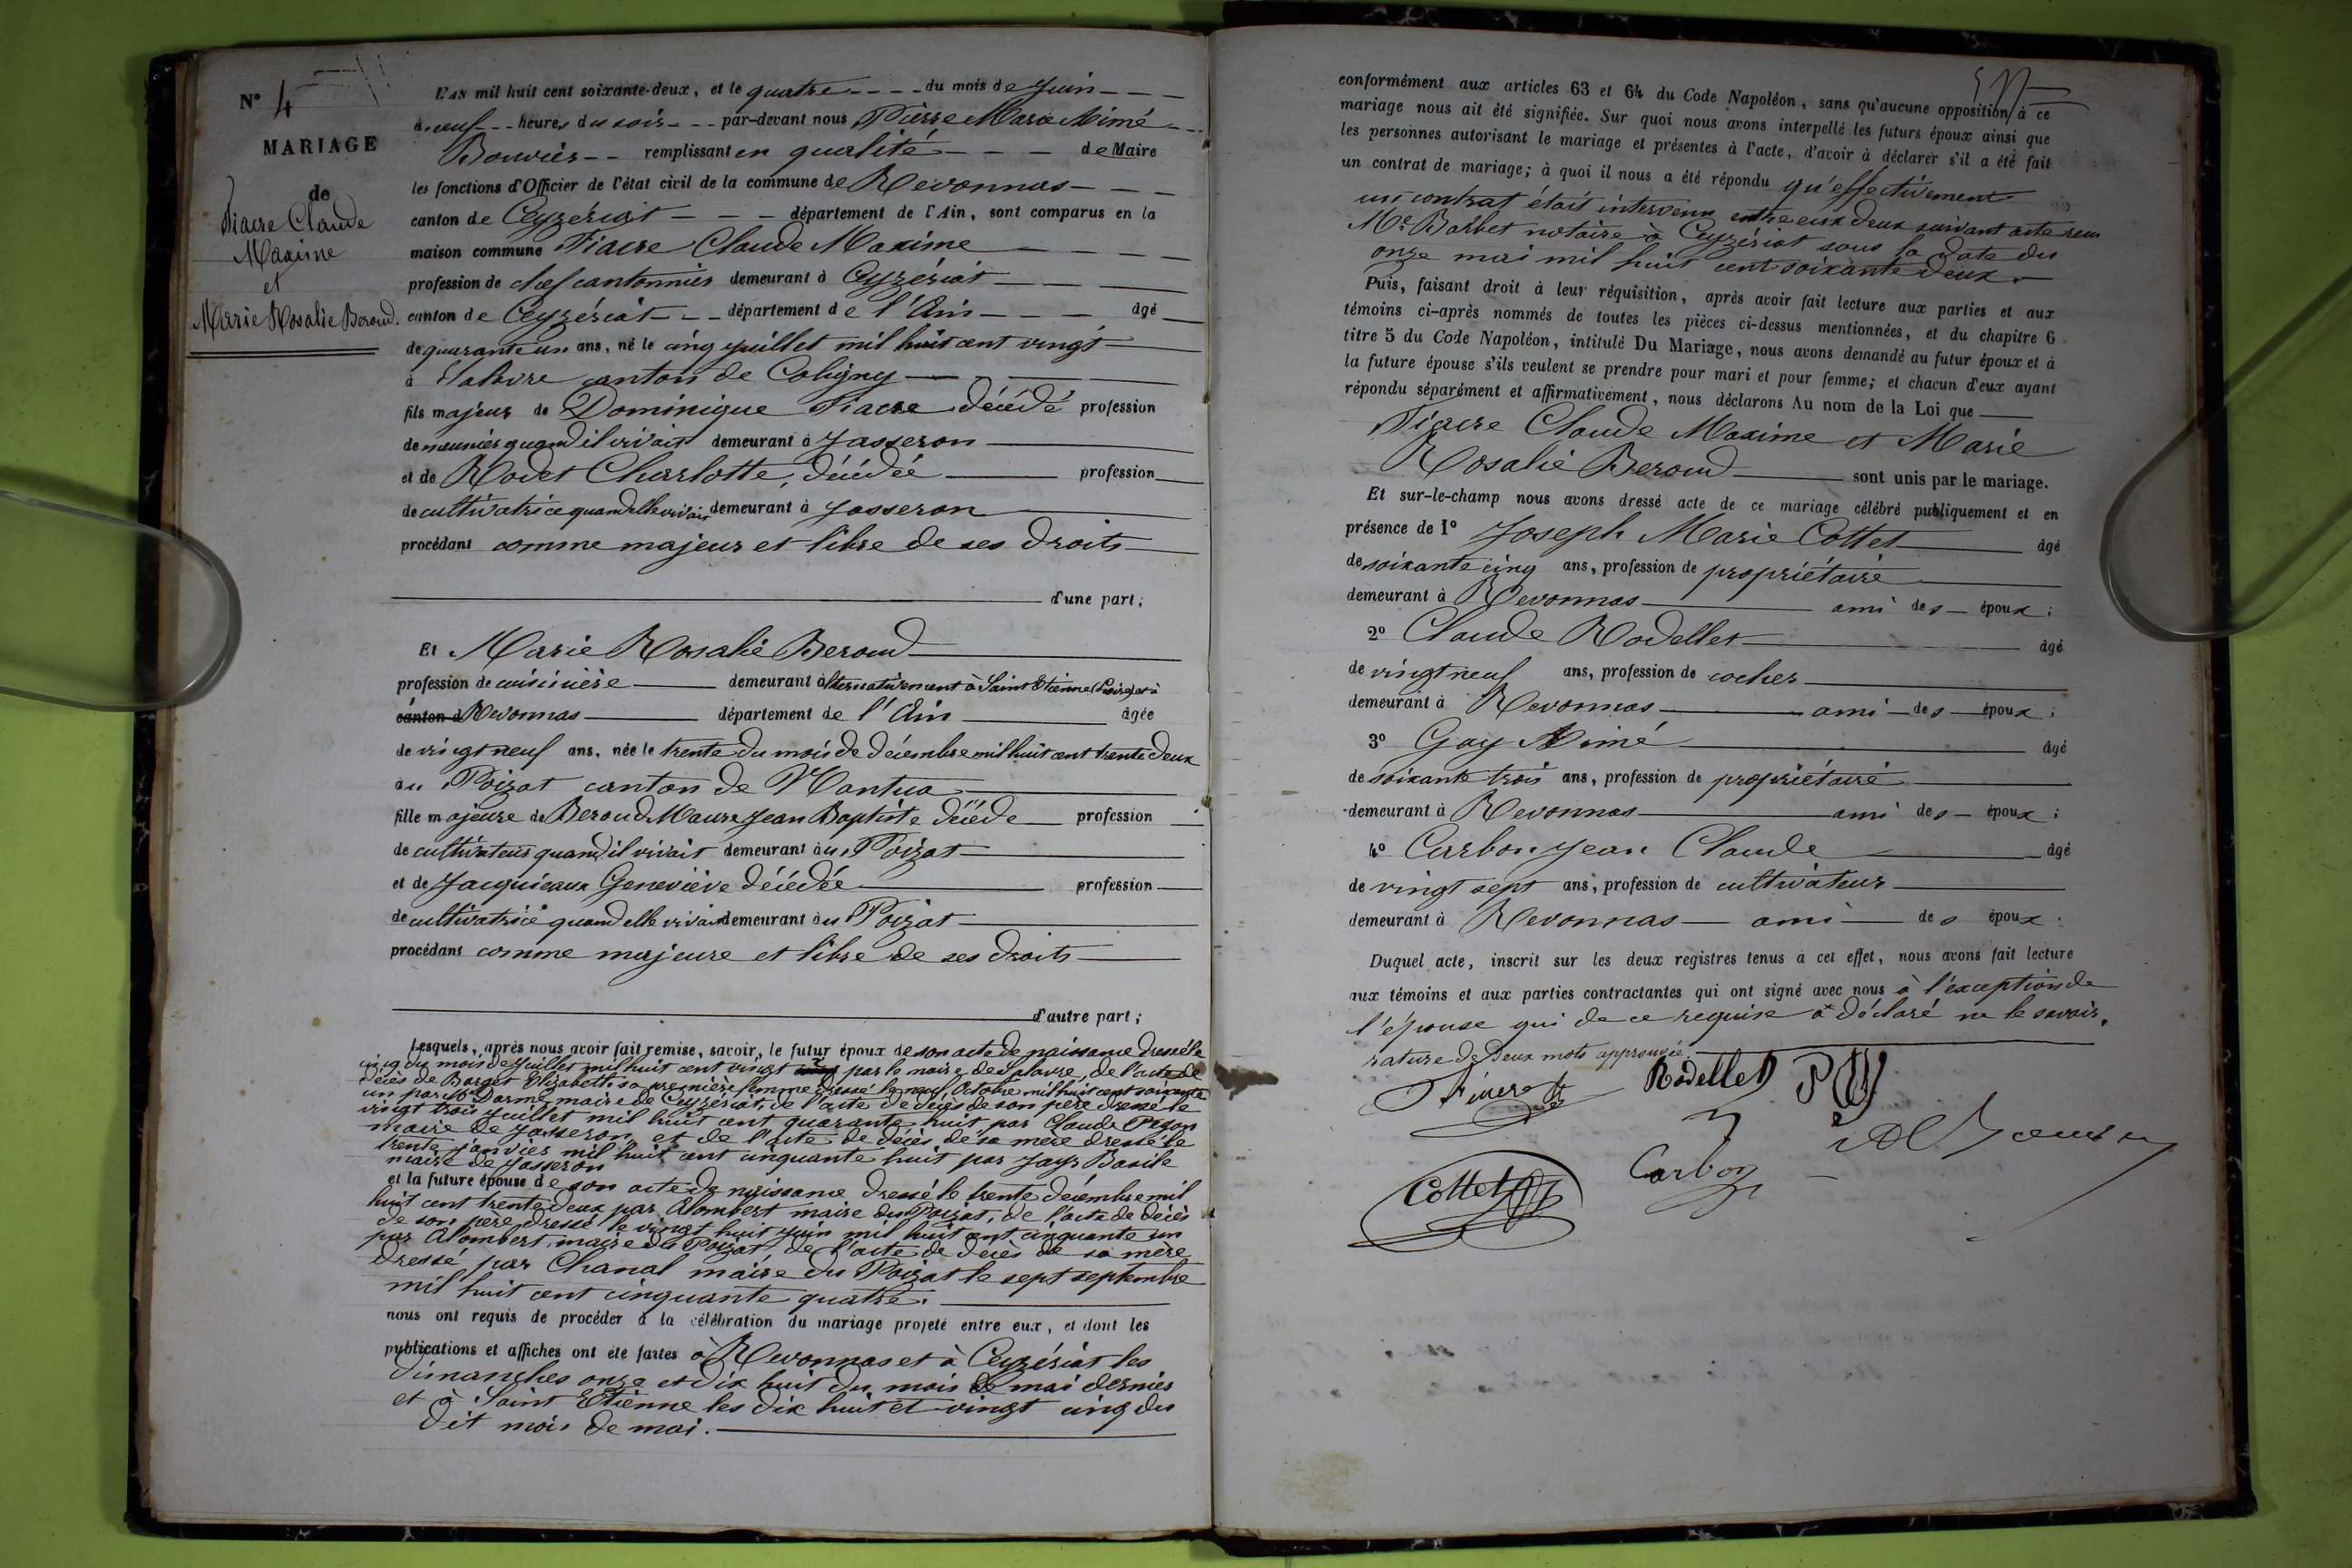 N° 4
MARIAGE
de
Fiacre Claude
Maxime
et
Marie Rosalie Beroud.
L'AN mil huit cent soixante-deux, et le quatre du mois de Juin
à neuf heures du soir par-devant nous Pierre Marie Aimé
Bouvier remplissant en qualité de Maire
les fonctions d'Officier de l'état civil de la commune de Revonnas
canton de Ceyzériat département de l'Ain, sont comparus en la
maison commune Fiacre Claude Maxime
profession de chef cantonnier demeurant à Ceyzériat
canton de Ceyzériat département de l'Ain âgé
de quarante un ans, né le cinq juillet mil huit cent vingt
à Salavre canton de Coligny
fils majeur de Dominique Fiacre décédé profession
de meunier quand il vivait demeurant à Jasseron
et de Rodet Charlotte, décédée profession
de cultivatrice quand elle vivait demeurant à Jasseron
procédant comme majeur et libre de ses droits
d'une part;
Et Marie Rosalie Beroud
profession de cuisinière demeurant alternativement à Saint Etienne (Loire) et à
canton d Revonnas département de l'Ain âgée
de vingt neuf ans, née le trente du mois de décembre mil huit cent trente deux
au Poizat canton de Nantua
fille majeure de Beroud Maure Jean Baptiste décédé profession
de cultivateur quand il vivait demeurant au Poizat
et de Jacquieaux Geneviève décédée profession
de cultivatrice quand elle vivait demeurant au Poizat
procédant comme majeure et libre de ses droits
d'autre part;
Lesquels, après nous avoir fait remise, savoir, le futur époux de son acte de naissance dressé le
cinq du mois de Juillet mil huit cent vingt par le maire de Salavre, de l'acte de
décès de Barget Elizabeth sa première femme dressé le neuf Octobre mil huit cent soixante
un par Darme maire de Ceyzériat, de l'acte de décès de son père dressé le
vingt trois juillet mil huit cent quarante huit par Claude Pison
maire de Jasseron et de l'acte de décès de sa mère dressé le
trente janvier mil huit cent cinquante huit par Jayr Basile
maire de Jasseron
et la future épouse de son acte de naissance dressé le trente décembre mil
huit cent trente deux par Alombert maire du Poizat, de l'acte de décès
de son père dressé le vingt huit juin mil huit cent cinquante un
par Alombert maire du Poizat, de l'acte de décès de sa mère
dressé par Chanal maire du Poizat le sept septembre
mil huit cent cinquante quatre.
nous ont requis de procéder à la célébration du mariage projeté entre eux, et dont les
publications et affiches ont été faites à Revonnas et à Ceyzériat les
dimanches onze et dix huit du mois de mai dernier
et à Saint Etienne les dix huit et vingt cinq du
dit mois de mai.
conformément aux articles 63 et 64 du Code Napoléon, sans qu'aucune opposition à ce
mariage nous ait été signifiée. Sur quoi nous avons interpellé les futurs époux ainsi que
les personnes autorisant le mariage et présentes à l'acte, d'avoir à déclarer s'il a été fait
un contrat de mariage; à quoi il nous a été répondu qu'effectivement
un contrat était intervenu entre eux deux suivant acte reçu
Me Barbet notaire à Ceyzériat sous la date du
onze mai mil huit cent soixante deux.
Puis, faisant droit à leur réquisition, après avoir fait lecture aux parties et aux
témoins ci-après nommés de toutes les pièces ci-dessus mentionnées, et du chapitre 6
titre 5 du Code Napoléon, intitulé Du Mariage, nous avons demandé au futur époux et à
la future épouse s'ils veulent se prendre pour mari et pour femme; et chacun d'eux ayant
répondu séparément et affirmativement, nous déclarons Au nom de la Loi que
Fiacre Claude Maxime et Marie
Rosalie Beroud sont unis par le mariage.
Et sur-le-champ nous avons dressé acte de ce mariage célébré publiquement et en
présence de 1° Joseph Marie Cottet âgé
de soixante cinq ans, profession de propriétaire
demeurant à Revonnas ami des époux;
2° Claude Rodellet âgé
de vingt neuf ans, profession de cocher
demeurant à Revonnas ami des époux;
3° Gay Aimé âgé
de soixante trois ans, profession de propriétaire
demeurant à Revonnas ami des époux;
4° Carbon Jean Claude âgé
de vingt sept ans, profession de cultivateur
demeurant à Revonnas ami des époux.
Duquel acte, inscrit sur les deux registres tenus à cet effet, nous avons fait lecture
aux témoins et aux parties contractantes qui ont signé avec nous à l'exception de
l'épouse qui de ce requise a déclaré ne le savoir.
rature de deux mots approuvée.
Fiacre Rodellet
Cottet Carbon